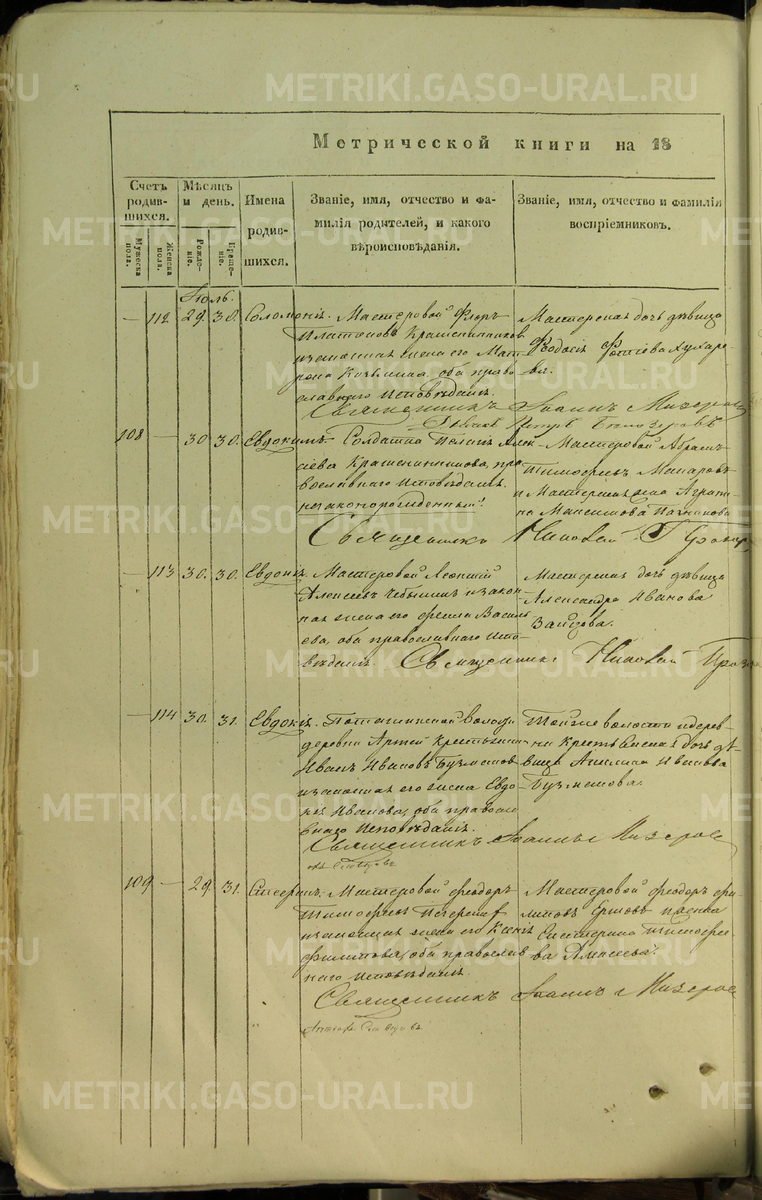 METRIKI.GASO-URAL.RU
Метрической книги на 18
Счетъ родив-шихся.
Мужеска пола.
Женска пола.
Мѣсяцъ и день.
Рожде-ніе.
Креще-ніе.
Имена родив-шихся.
Званіе, имя, отчество и фа-
милія родителей, и какого
вѣроисповѣданія.
Званіе, имя, отчество и фамилія
воспріемниковъ.
Іюль.
— 112 29. 30. Соломонія. Мастеровой Флоръ
Платоновъ Крашенинниковъ
и законная жена его Мат-
рона Козьмина, оба право
славнаго исповѣданія.
Мастерская дочь дѣвица
Ѳеодосія Фотіева Кухаре-
ва.
Священникъ Іоаннъ
108 — 30 30. Евдокимъ. Солдатка Пелагія Алек-
сіева Крашенинникова, пра
вославнаго исповѣданія.
незаконорожденный.
Мастеровой Абрамъ
Тимофеевъ Макаровъ
и Мастерская жена Агрипи-
на Максимова
Священникъ Николай
— 113 30. 30. Евдокія. Мастеровой Леонтій
Алексеевъ Чебыкинъ и закон-
ная жена его Фекла Василь
ева, оба православнаго испо-
вѣданія.
Мастерская дочь дѣвица
Александра Иванова
Зайцова.
Священникъ Николай
— 114 30. 31. Евдокія. Поташинской Волости
деревни Артей Крестьянинъ
Иванъ Ивановъ Бузмаковъ
и законная его жена Евдо-
кія Иванова, оба правосла
внаго исповѣданія.
Той же волости и дерев-
ни Крестьянская дочь дѣ-
вица Анисия Иванова
Бузмакова.
Священникъ Іоаннъ
109 — 29 31. Мастеровой Феодоръ
Тимофеевъ
и законная жена его Ксенія
Филипова, оба православ
наго исповѣданія.
Мастеровой Феодоръ Фи
липовъ Ершовъ и
Екатерина Тимофее
ва
Священникъ Іоаннъ